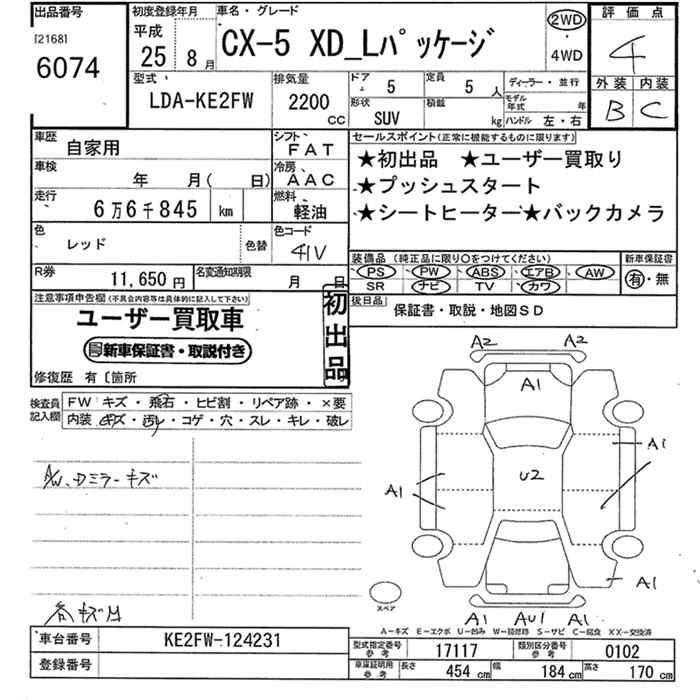 出品番号
[2168]
6074
初度登録年月
平成
25 8月
車名・グレード
CX-5 XD_Lパッケージ
2WD
・
4WD
評価点
4
外装 内装
B C
型式
LDA-KE2FW
排気量
2200
CC
ドア
5
定員
5人
ディーラー・並行
形状
SUV
積載
kg
モデル年式 年
ハンドル 左・右
車歴
自家用
シフト
FAT
車検
年 月( 日)
冷房
AAC
走行
6万6千845 km
燃料
軽油
色
レッド
色替
色コード
41V
R券
11,650円
名変通知期限
月 日
セールスポイント(正常に機能するものに限ります)
★初出品 ★ユーザー買取り
★プッシュスタート
★シートヒーター★バックカメラ
装備品 (純正品に限り○をつけてください)
PS・PW・ABS・エアB・AW
SR ナビ TV カワ
新車保証書
有・無
後日品
保証書・取説・地図SD
注意事項申告欄(不具合内容等は具体的に記入して下さい)
ユーザー買取車
新車保証書・取説付き
初出品
修復歴 有〔箇所
検査員記入欄
FW キズ・飛石・ヒビ割・リペア跡・×要
内装 キズ・汚レ・コゲ・穴・スレ・キレ・破レ
A/W、Dミラーキズ
各キズ凹
A2 A2
A1
A1
U2
A1
A1
スペア
A1 AU1 A1
A－キズ E－エクボ U－凹み W－補修跡 S－サビ C－腐食 XX－交換済
車台番号
KE2FW-124231
登録番号
型式指定番号 参考
17117
類別区分番号 参考
0102
車庫証明用 参考
長さ 454 cm
幅 184 cm
高さ 170 cm